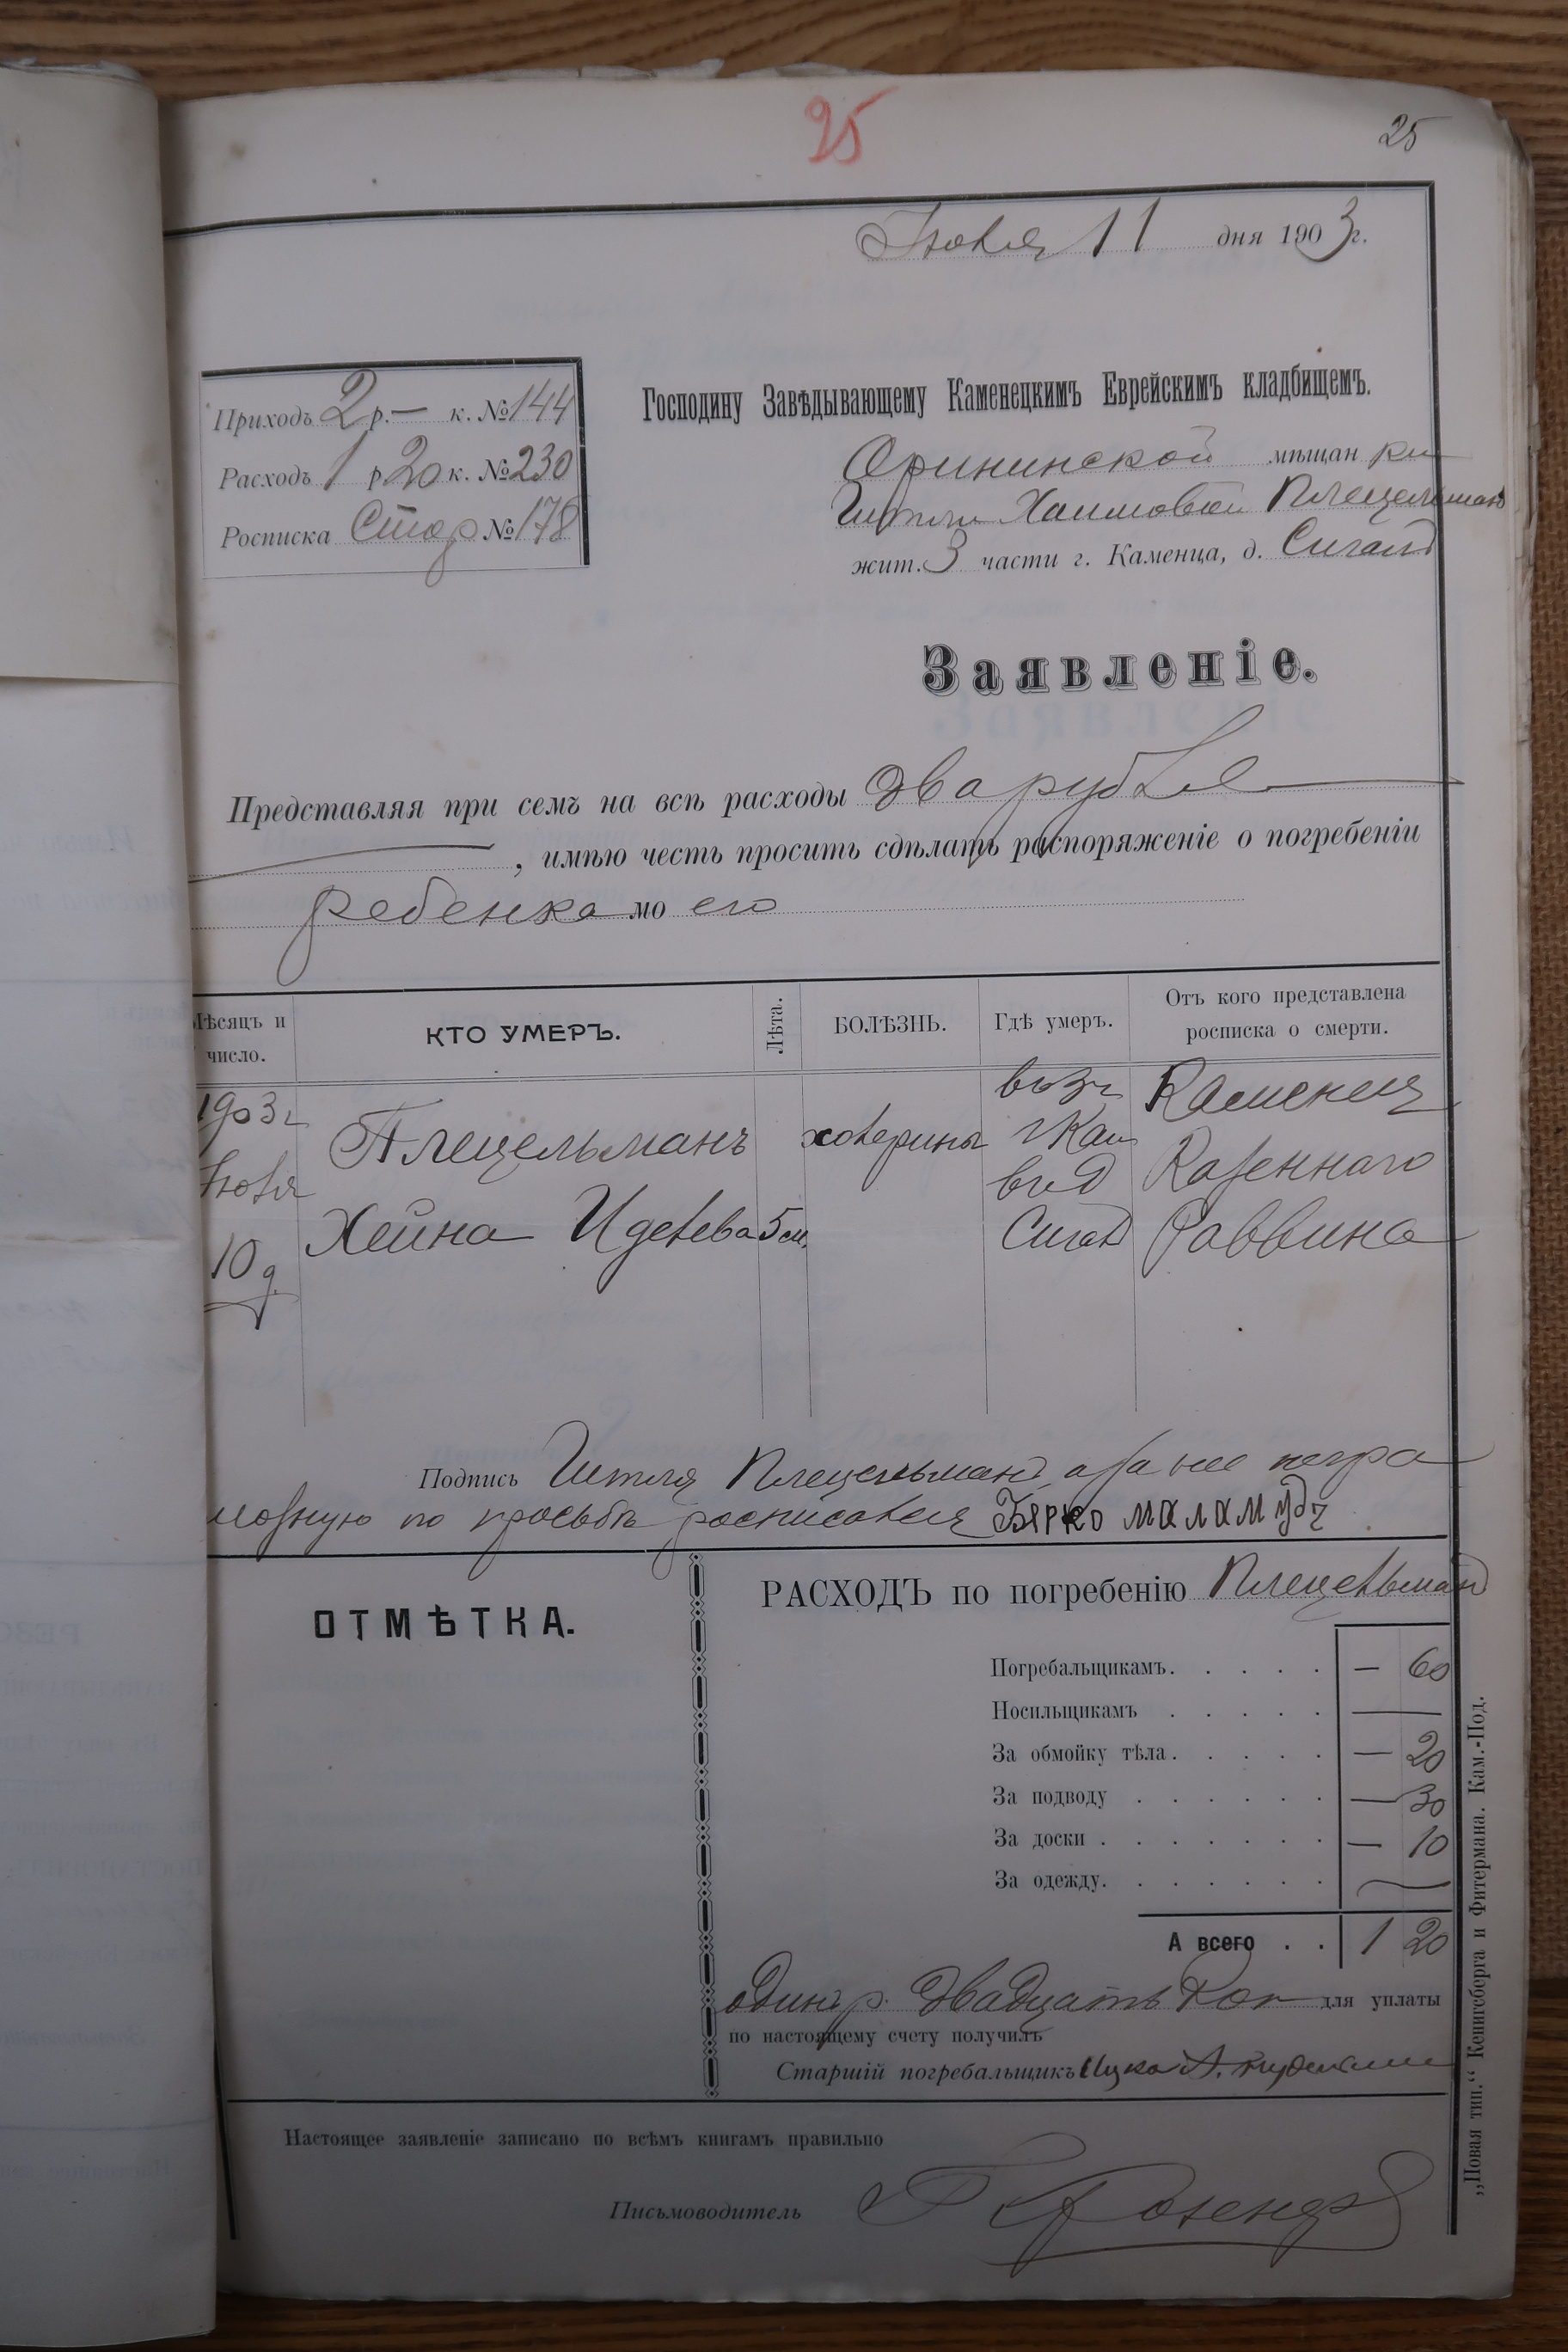 25
25
Июля 11 дня 1903 г.
Приходъ 2 р. — к. № 144
Расходъ 1 р 20 к. № 230
Росписка Стар № 178
Господину Завѣдывающему Каменецкимъ Еврейскимъ кладбищемъ.
Орининской мѣщан ки
Хаимовой Плецельман
жит. 3 части г. Каменца, д. Сигалъ
Заявленіе.
Представляя при семъ на всѣ расходы два рубля
, имѣю честь просить сдѣлать распоряженіе о погребеніи
ребенка мо его
Мѣсяцъ и число.
КТО УМЕРЪ.
Лѣта.
БОЛѢЗНЬ.
Гдѣ умеръ.
Отъ кого представлена росписка о смерти.
1903 г Июля 10 д.
Плецельманъ Хейна Иделева
5 м.
холерина
в 3 ч г Кам в д Сигал
Каменец Казеннаго Раввина
Подпись Плецельман, а за нее негра
мотную по просьбѣ росписался Бярко маламудъ
ОТМѢТКА.
РАСХОДЪ по погребенію Плецельман
Погребальщикамъ. — 60
Носильщикамъ —
За обмойку тѣла. — 20
За подводу — 30
За доски — 10
За одежду. —
А всего . . 1 20
один р. двадцать коп для уплаты
по настоящему счету получилъ
Старшій погребальщикъ Ицко
Настоящее заявленіе записано по всѣмъ книгамъ правильно
Письмоводитель
„Новая тип.“ Кенигсберга и Фитермана. Кам.-Под.